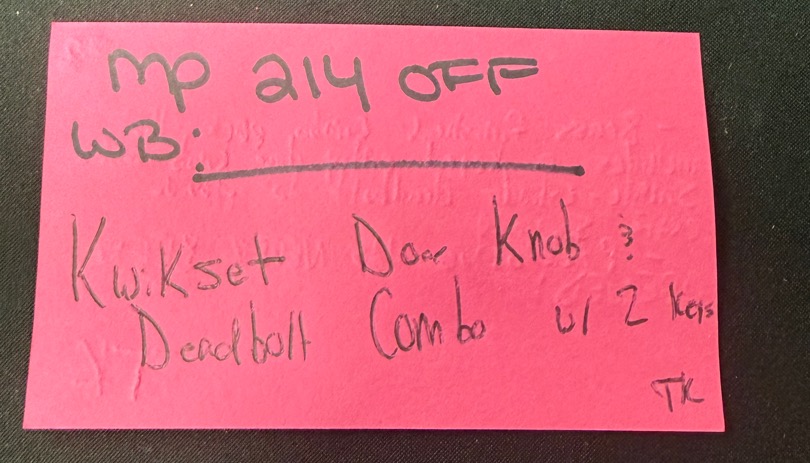 MP 214 OFF
WB:
Kwikset Door Knob &
Deadbolt Combo w/ 2 Keys
TK